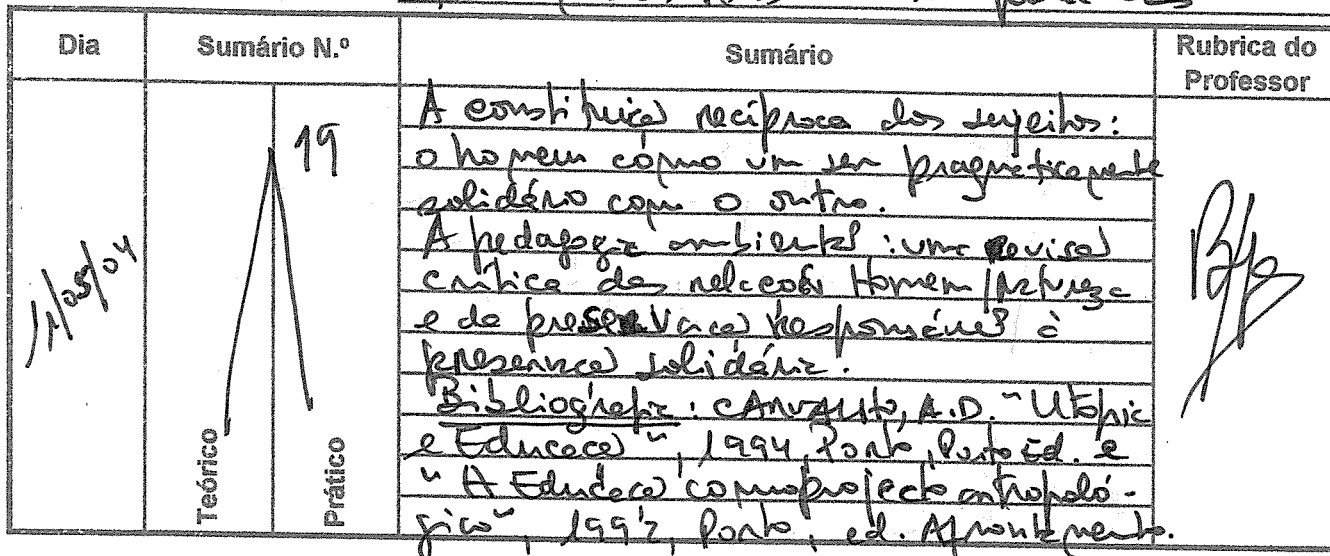 Dia
Sumário N.º
Sumário
Rubrica do
Professor
11/05/04
19
Teórico
Prático
A constituição recíproca dos sujeitos:
o homem como um ser pragmaticamente
solidário com o outro.
A pedagogia ambiental: uma revisão
crítica das relações Homem/Natureza
e da preservação responsável à
presença solidária.
Bibliografia: CARVALHO, A.D. "Utopia
e Educação", 1994, Porto, Porto Ed. e
"A Educação como projecto antropoló-
gico", 1992, Porto, ed. Afrontamento.